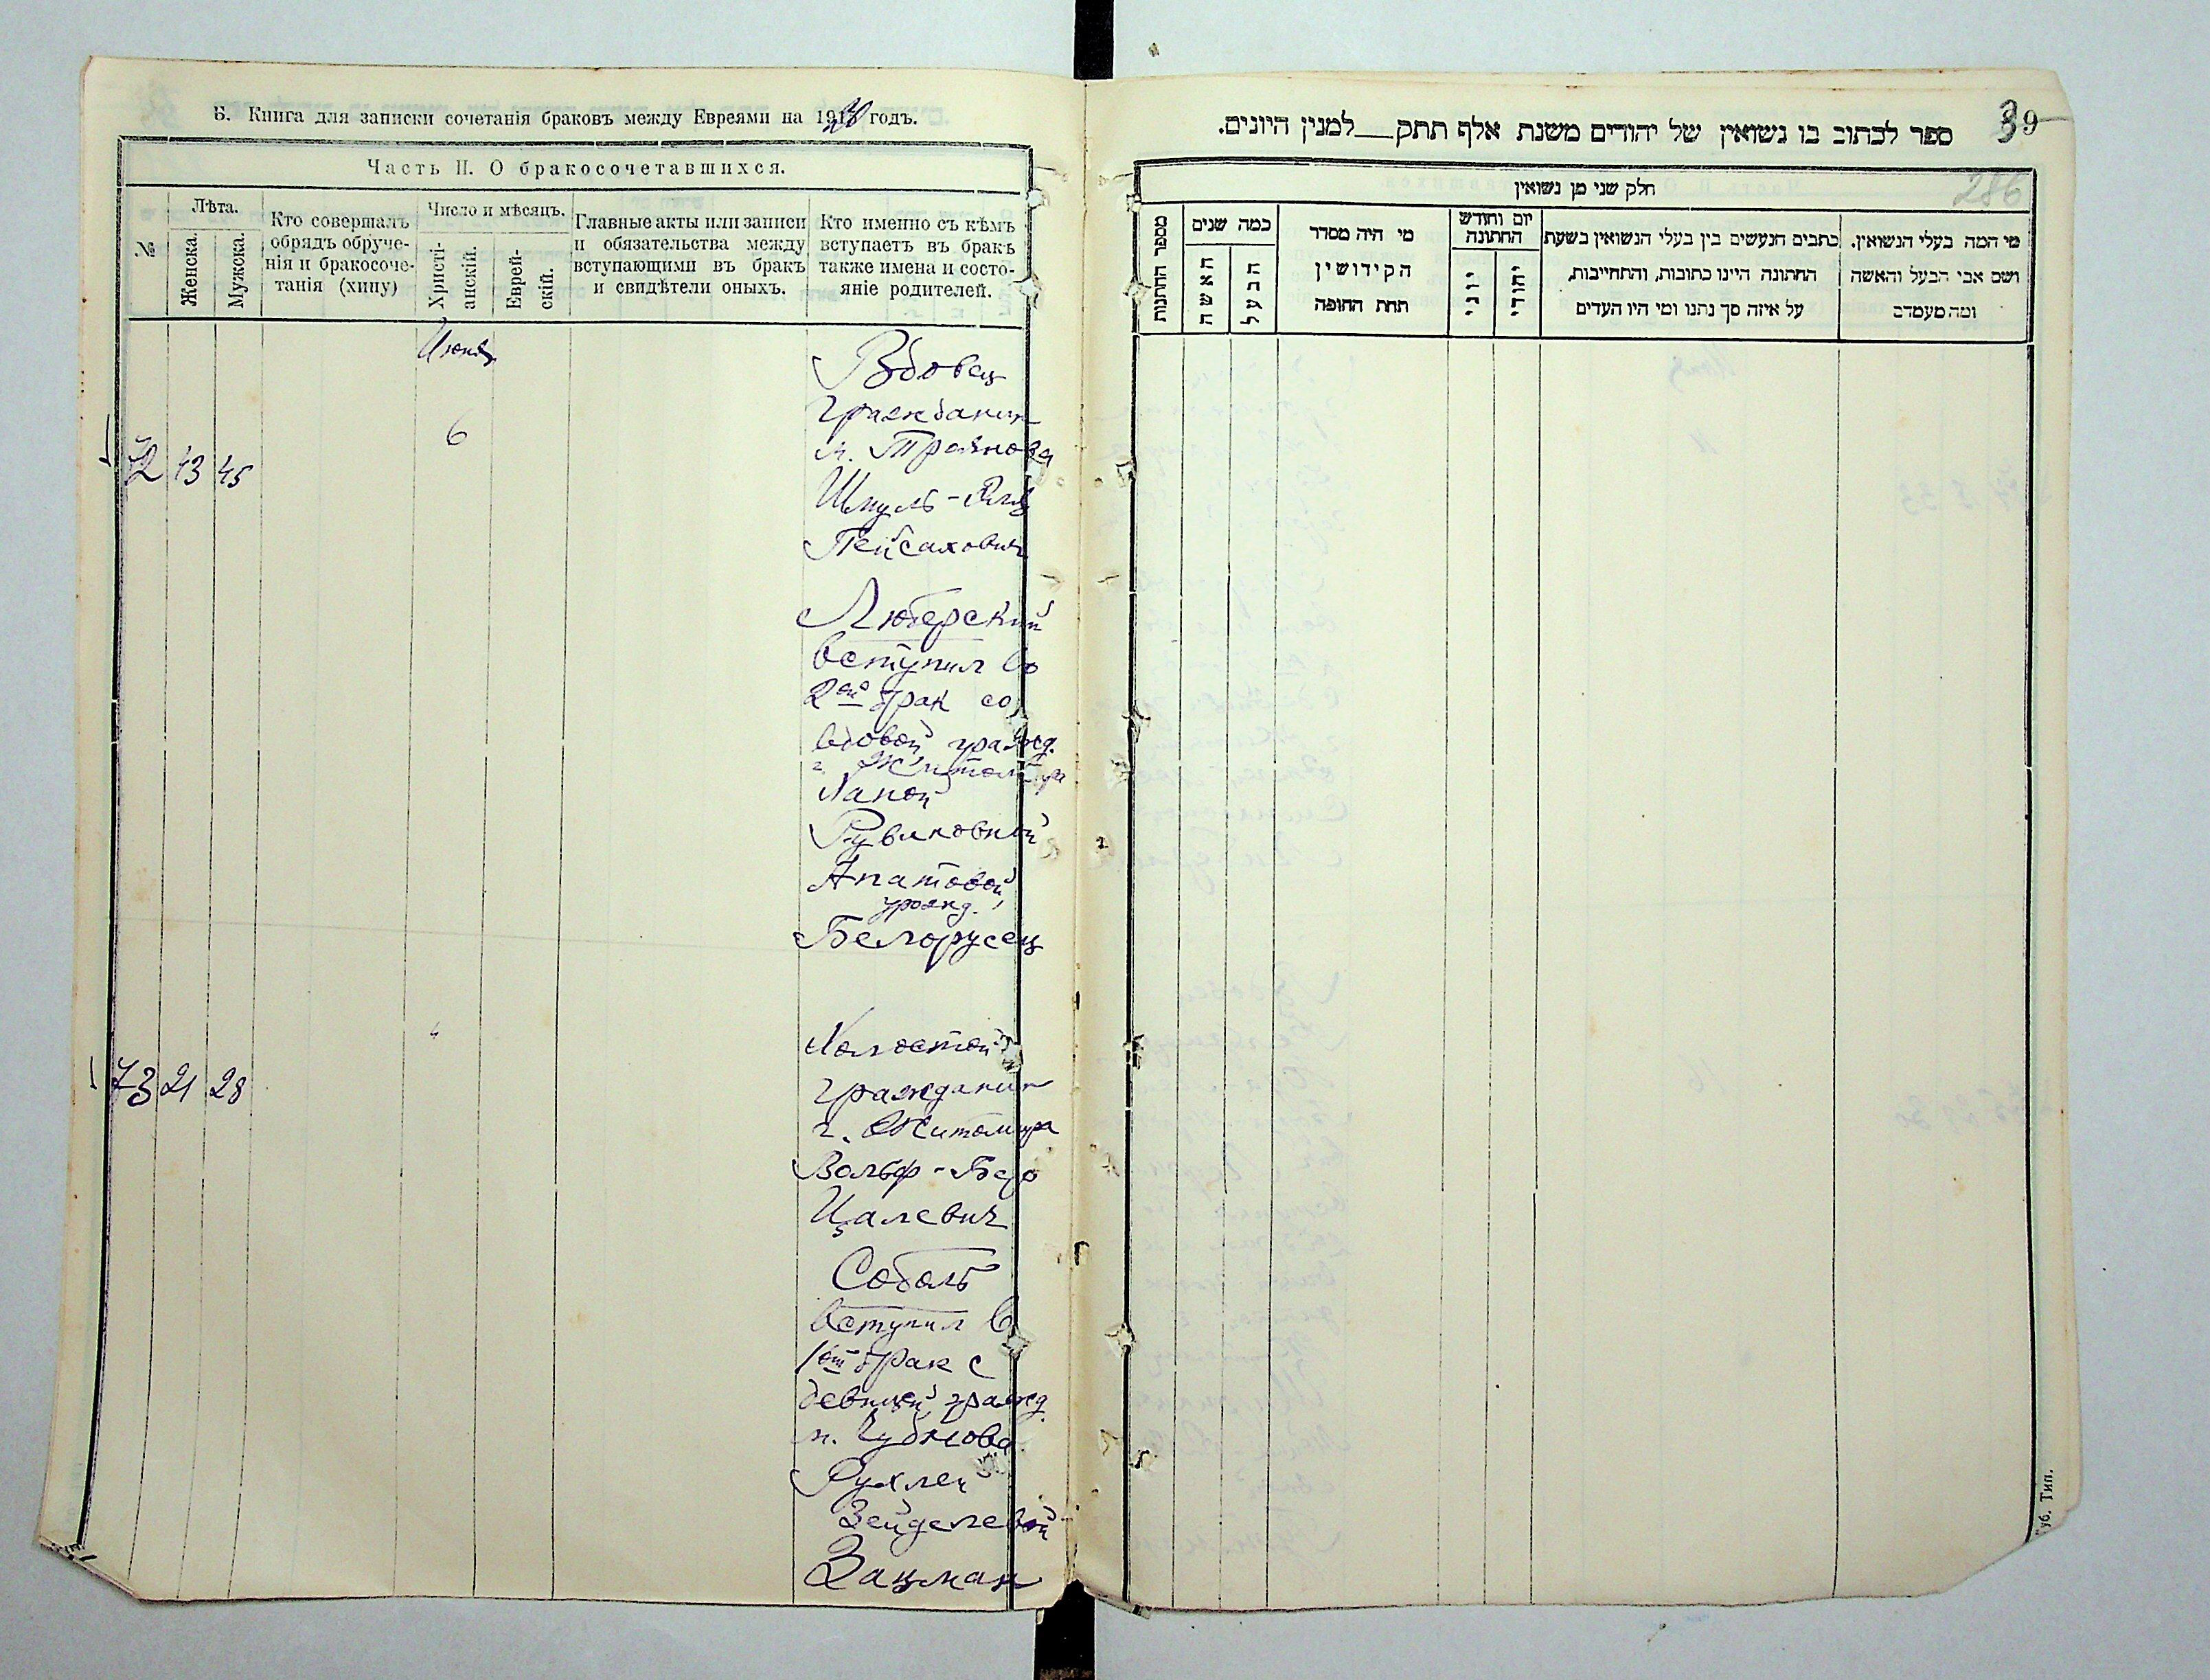 Б. Книга для записки сочетанія браковъ между Евреями на 1920 годъ.
Часть II. О бракосочетавшихся.
№
Лѣта.
Женска.
Мужска.
Кто совершалъ
обрядъ обруче-
нія и бракосоче-
танія (хипу)
Число и мѣсяцъ.
Христі-
анскій.
Еврей-
скій.
Главные акты или записи
и обязательства между
вступающими въ бракъ
и свидѣтели оныхъ.
Кто именно съ кѣмъ
вступаетъ въ бракъ
также имена и состо-
яніе родителей.
72 43 45
6
Вдовец
Гражданин
м. Троянова
Шмуль-
Пейсахович
Люберский
вступил во
2ой брак со
вдовой гражд.
г. Житомира
Ханой
Рувиновной
Апатовой
урожд.
Белорусец
73 21 28
"
Холостой
гражданин
г. Житомира
Вольф-Бер
Цалевич
Соболь
вступил в
1ый брак с
девицей гражд.
м. Чуднова
Рухлей
Зейделевой
Зацман
39
286
ספר לכתוב בו נשואין של יהודים משנת אלף תתק__למנין היונים.
חלק שני מן נשואין
מספר החתנות
כמה שנים
האשה
הבעל
מי היה מסדר
הקידושין
תחת החופה
יום וחודש
החתונה
יוני
יהודי
כתבים הנעשים בין בעלי הנשואין בשעת
החתונה היינו כתובות, והתחייבות,
על איזה סך נתנו ומי היו העדים
מי המה בעלי הנשואין.
ושם אבי הבעל והאשה
ומה מעמדם
Губ. Тип.